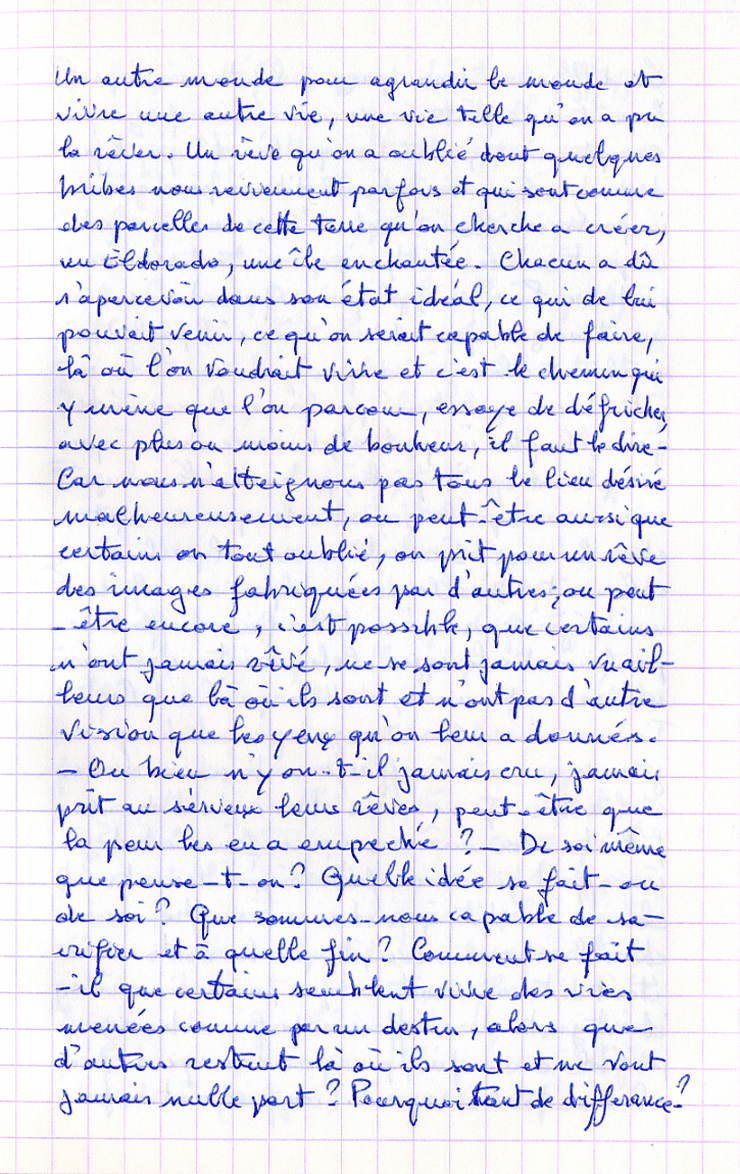 Un autre monde pour agrandir le monde et
vivre une autre vie, une vie telle qu'on a pu
la rêver. Un rêve qu'on a oublié dont quelques
bribes nous reviennent parfois et qui sont comme
des parcelles de cette terre qu'on cherche a créer,
un Eldorado, une île enchantée. Chacun a dû
s'apercevoir dans son état idéal, ce qui de lui
pouvait venir, ce qu'on serait capable de faire,
là où l'on voudrait vivre et c'est le chemin qui
y mène que l'on parcour, essaye de défricher
avec plus ou moins de bonheur, il faut le dire-
Car nous n'atteignons pas tous le lieu désiré
malheureusement, ou peut-être aussi que
certains on tout oublié, on prit pour un rêve
des images fabriquées par d'autres; ou peut
-être encore, c'est possible, que certains
n'ont jamais rêvé, ne se sont jamais vu ail-
leurs que là où ils sont et n'ont pas d'autre
vision que les yeux qu'on leur a donnés.
- Ou bien n'y on-t-il jamais cru, jamais
prit au sérieux leurs rêves, peut-être que
la peur les en a empeché ? - De soi même
que pense-t-on? Quelle idée se fait-on
de soi? Que sommes-nous capable de sa-
crifier et à quelle fin? Comment se fait
-il que certains semblent vivre des vies
menées comme par un destin, alors que
d'autres restent là où ils sont et ne vont
jamais nulle part ? Pourquoi tant de differance?